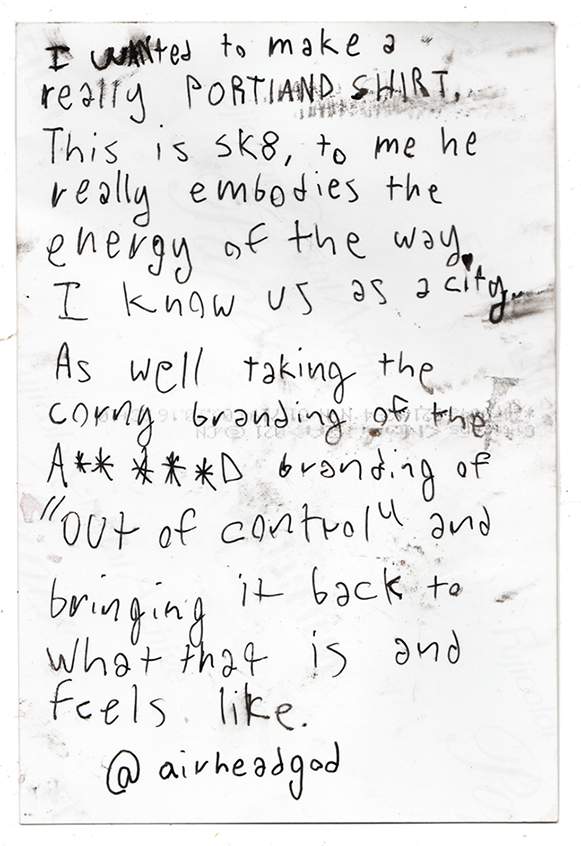 I wanted to make a
really PORTLAND SHIRT.
This is sk8, to me he
really embodies the
energy of the way
I know us as a city.
As well taking the
corny branding of the
A** ***D branding of
"out of control" and
bringing it back to
what that is and
feels like.
@airheadgod